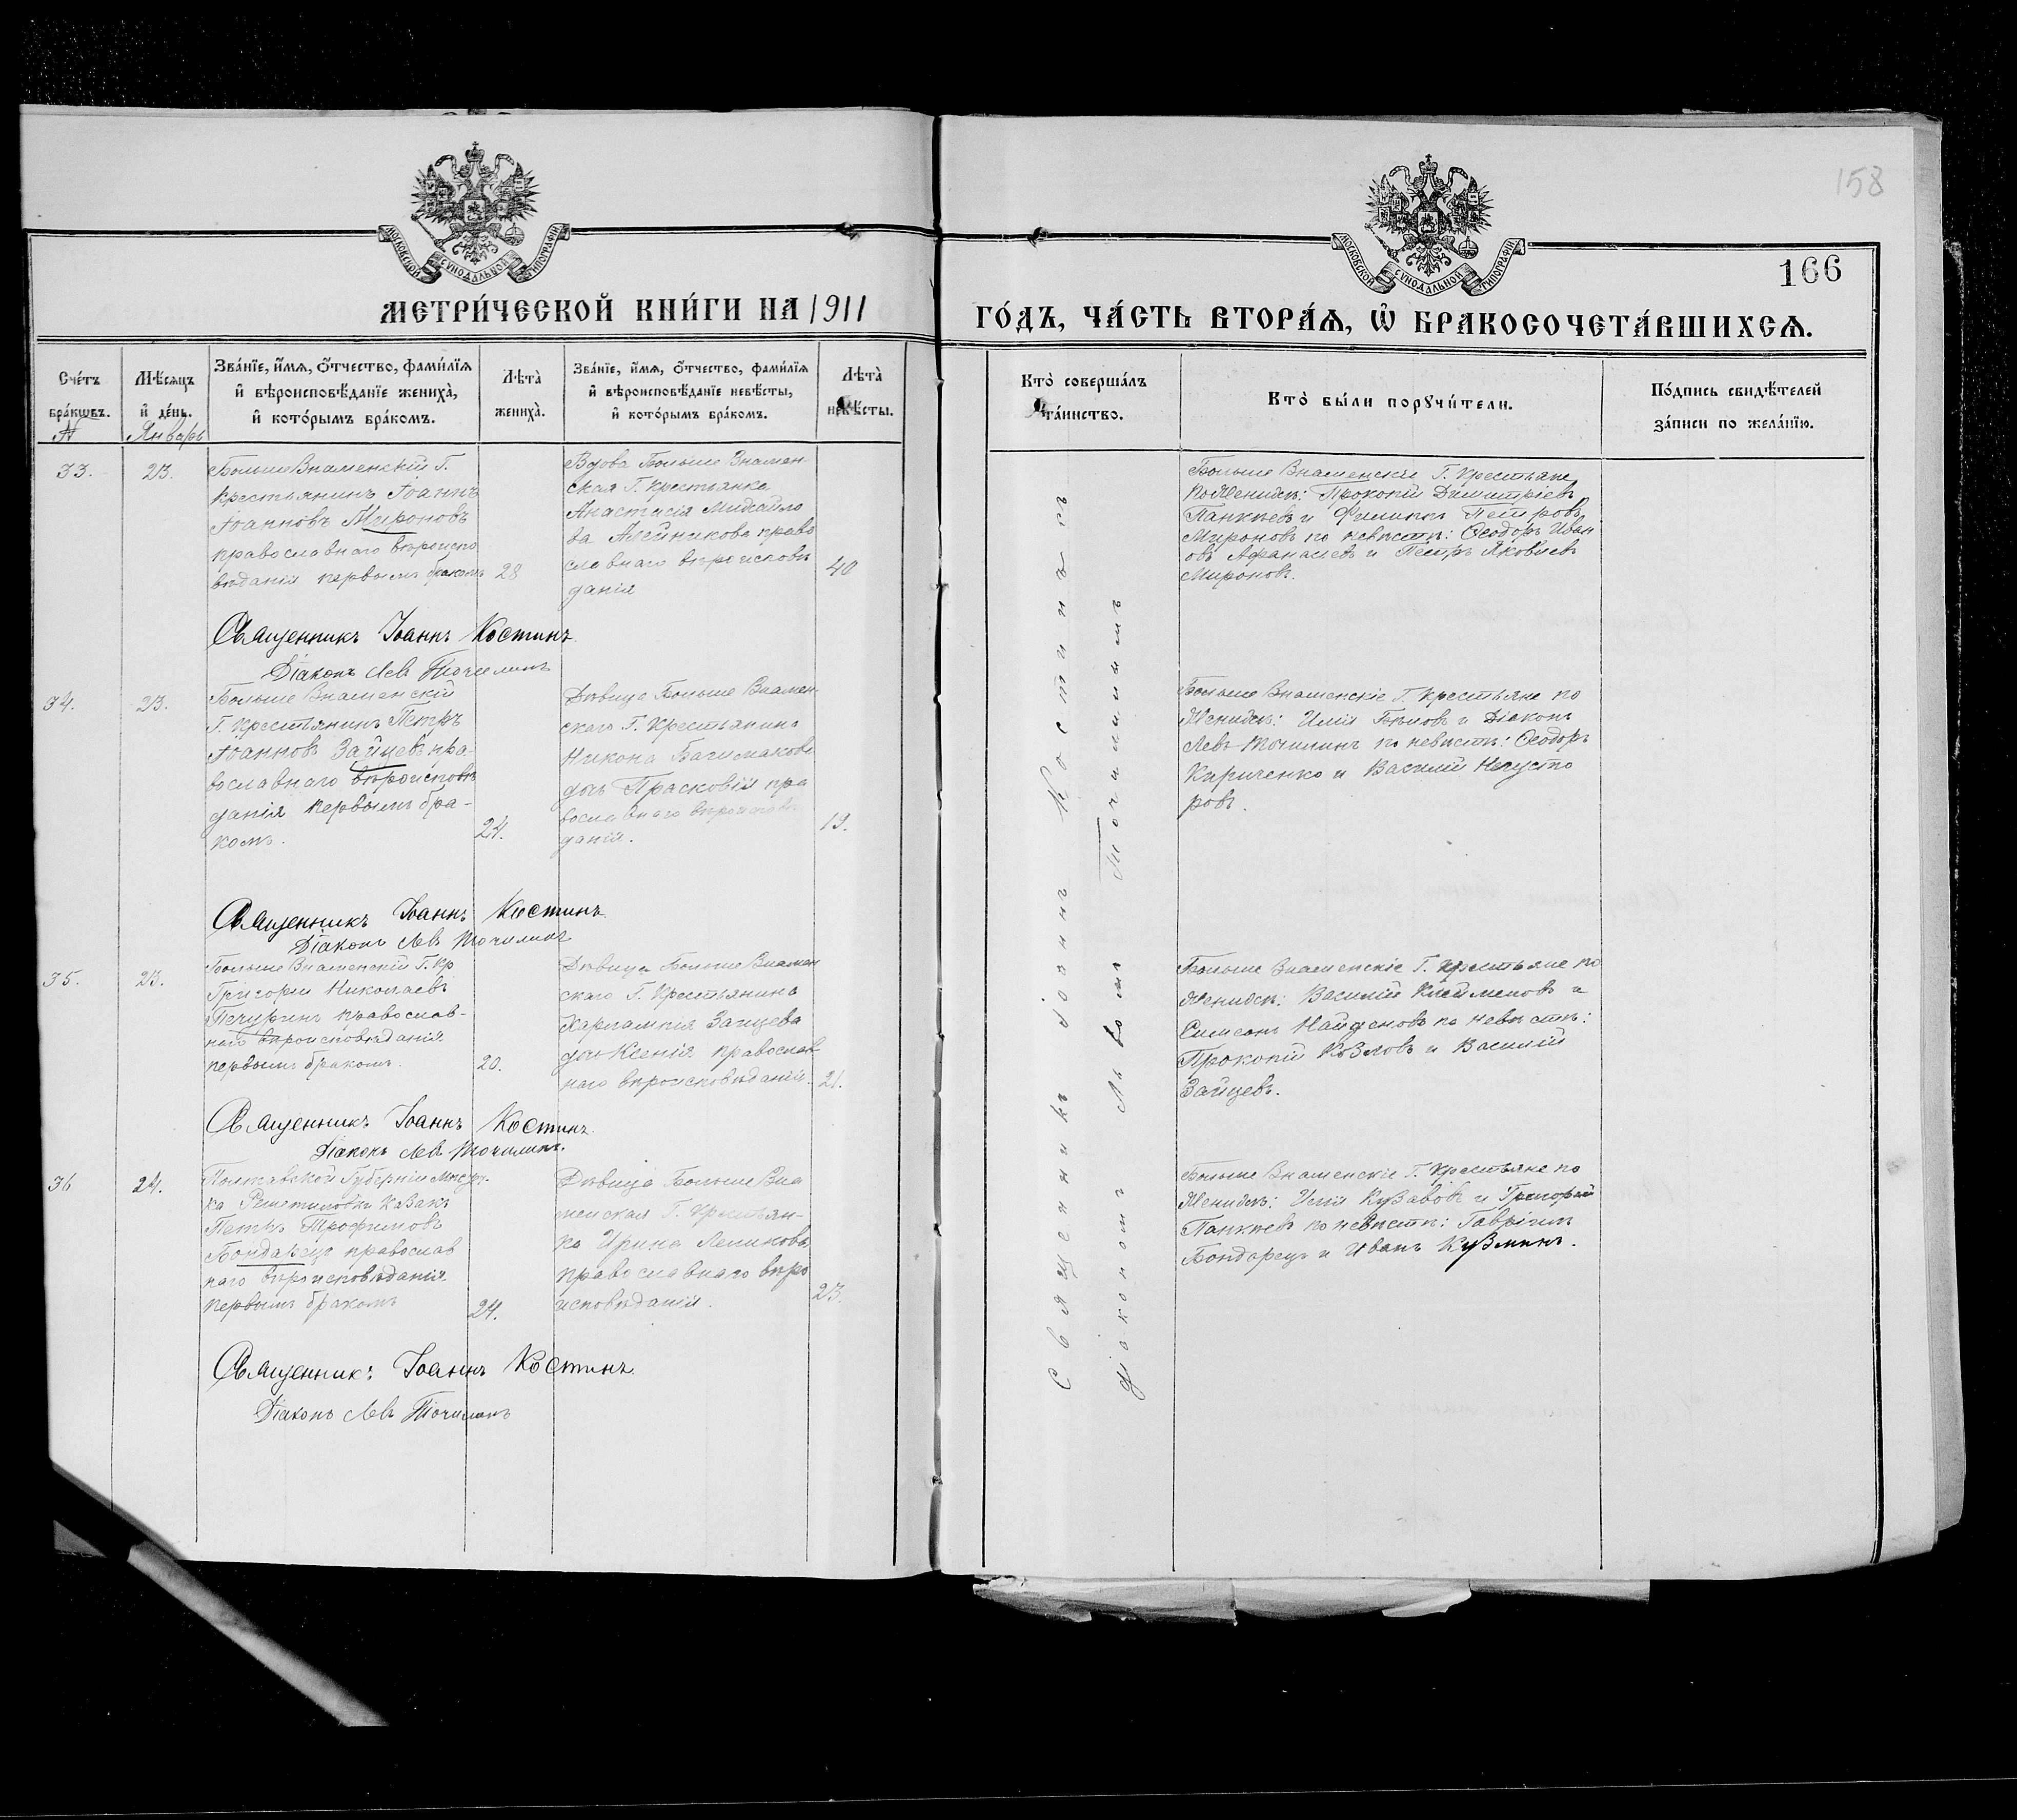 158
166
МОСКОВСКОЙ СѴНОДАЛЬНОЙ ТИПОГРАФІИ
МОСКОВСКОЙ СѴНОДАЛЬНОЙ ТИПОГРАФІИ
МЕТРИ́ЧЕСКОЙ КНИ́ГИ НА 1911
ГО́ДЪ, ЧА́СТЬ ВТОРА́Ѧ, Ѽ БРАКОСОЧЕТА́ВШИХСѦ.
Сче́тъ бра́кѡвъ.
Мѣ́сяцъ и де́нь.
Зва́нїе, и́мя, ѻ́тчество, фами́лїя
и вѣроисповѣ́данїе жениха̀,
и кото́рымъ бра́комъ.
Лѣта̀ жениха̀.
Зва́нїе, и́мя, ѻ́тчество, фами́лїя
и вѣроисповѣ́данїе невѣ́сты,
и кото́рымъ бра́комъ.
Лѣта̀ невѣ́сты.
Кто̀ соверша́лъ
та́инство.
Кто̀ бы́ли порꙋчи́тели.
По́дпись свидѣ́телей
за́писи по жела́нїю.
№ Январь
33. 23.
Больше Знаменскій Г.
крестьянинъ Іоаннъ
Іоанновъ Мироновъ
православнаго вѣроиспо
вѣданія первымъ бракомъ 28
Вдова Больше Знамен
ская Г. крестьянка
Анастасія Михайло
ва Алейникова право
славнаго вѣроисповѣ
данія 40
Больше Знаменскіе Г. Крестьяне
по Женихѣ: Прокопій Димитріевъ
Панкѣевъ и Филиппъ Петровъ
Мироновъ по невѣстѣ: Ѳеодоръ Иван
овъ Афанасьевъ и Петръ Яковлевъ
Мироновъ.
Священникъ Іоаннъ Костинъ
Діаконъ Левъ Точилинъ
34. 23.
Больше Знаменскій
Г. Крестьянинъ Петръ
Іоанновъ Зайцевъ пра
вославнаго вѣроисповѣ
данія первымъ бра-
комъ. 24.
Дѣвица Больше Знамен
скаго Г. Крестьянина
Никона
дочь Прасковія пра
вославнаго вѣроисповѣ
данія. 19.
Больше Знаменскіе Г. крестьяне по
Женихѣ: Илія Бѣловъ и Діаконъ
Левъ Точилинъ по невѣстѣ: Ѳеодоръ
Кириченко и Василій Нехусто
ровъ.
Священникъ Іоаннъ Костинъ
Діаконъ Левъ Точилинъ
35. 23.
Больше Знаменскій Г. Кр
Григорій Николаевъ
Печуринъ православ-
наго вѣроисповѣданія
первымъ бракомъ. 20.
Дѣвица Больше Знамен
скаго Г. Крестьянина
Харлампія Зайцева
дочь Ксенія православ
наго вѣроисповѣданія. 21.
Больше Знаменскіе Г. Крестьяне по
Женихѣ: Василій Клейменовъ и
Симеонъ Найденовъ по невѣстѣ:
Прокопій Козловъ и Василій
Зайцевъ.
Священникъ Іоаннъ Костинъ.
Діаконъ Левъ Точилинъ.
36 24.
Полтавской Губерніи
ка Решетиловки казакъ
Петръ Трофимовъ
Бондарецъ православ
наго вѣроисповѣданія
первымъ бракомъ 24.
Дѣвица Больше Зна
менская Г. Крестьян-
ка Ирина
православнаго вѣро
исповѣданія. 23.
Больше Знаменскіе Г. Крестьяне по
Женихѣ: Илія Кузавовъ и Григорій
Панкѣевъ по невѣстѣ: Гавріилъ
Бондарецъ и Иванъ Кузминъ.
Священникъ Іоаннъ Костинъ.
Діаконъ Левъ Точилинъ
Священникъ Іоаннъ Костинъ съ
діакономъ Львомъ Точилинымъ